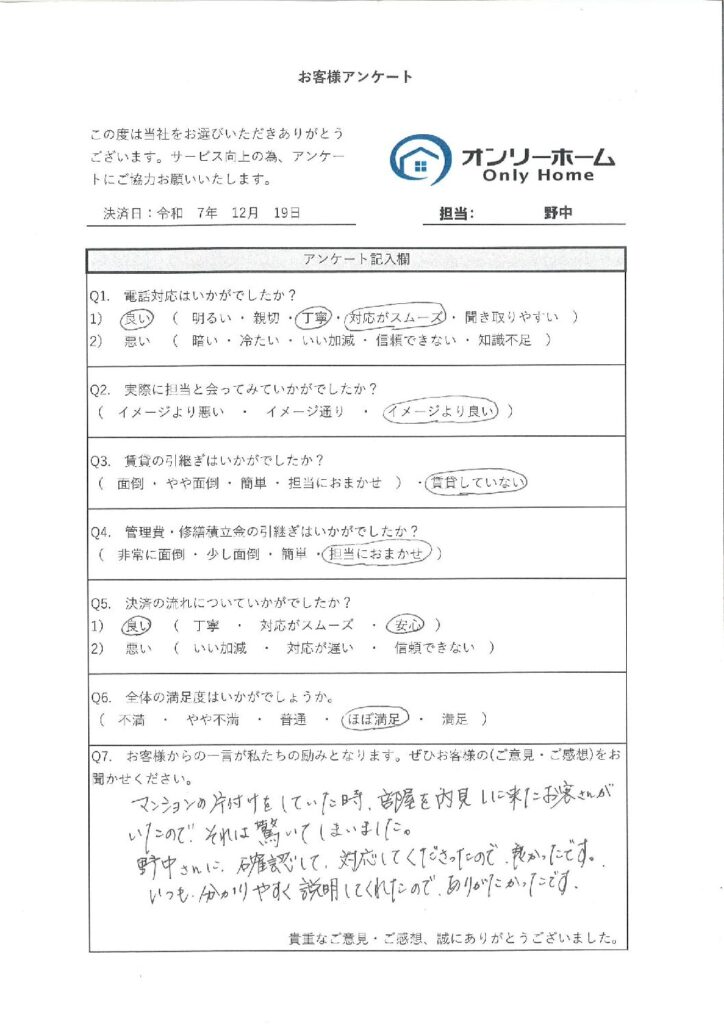 お客様アンケート
この度は当社をお選びいただきありがとう
ございます。サービス向上の為、アンケー
トにご協力お願いいたします。
オンリーホーム
Only Home
決済日：令和 7年 12月 19日
担当： 野中
アンケート記入欄
Q1. 電話対応はいかがでしたか？
1) 良い （ 明るい ・ 親切 ・ 丁寧 ・ 対応がスムーズ ・ 聞き取りやすい ）
2) 悪い （ 暗い ・ 冷たい ・ いい加減 ・ 信頼できない ・ 知識不足 ）
Q2. 実際に担当と会ってみていかがでしたか？
（ イメージより悪い ・ イメージ通り ・ イメージより良い ）
Q3. 賃貸の引継ぎはいかがでしたか？
（ 面倒 ・ やや面倒 ・ 簡単 ・ 担当におまかせ ） ・ 賃貸していない
Q4. 管理費・修繕積立金の引継ぎはいかがでしたか？
（ 非常に面倒 ・ 少し面倒 ・ 簡単 ・ 担当におまかせ ）
Q5. 決済の流れについていかがでしたか？
1) 良い （ 丁寧 ・ 対応がスムーズ ・ 安心 ）
2) 悪い （ いい加減 ・ 対応が遅い ・ 信頼できない ）
Q6. 全体の満足度はいかがでしょうか。
（ 不満 ・ やや不満 ・ 普通 ・ ほぼ満足 ・ 満足 ）
Q7. お客様からの一言が私たちの励みとなります。ぜひお客様の(ご意見・ご感想)をお
聞かせください。
マンションの片付けをしていた時、部屋を内見しに来たお客さんが
いたので、それは驚いてしまいました。
野中さんに、確認して、対応してくださったので、良かったです。
いつも、分かりやすく説明してくれたので、ありがたかったです。
貴重なご意見・ご感想、誠にありがとうございました。